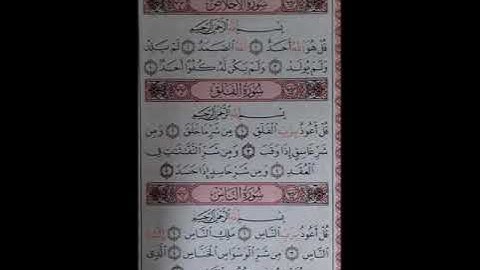 سُورَةُ الإِخْلَاصِ
بِسْمِ اللَّهِ الرَّحْمَٰنِ الرَّحِيمِ
قُلْ هُوَ اللَّهُ أَحَدٌ ١ اللَّهُ الصَّمَدُ ٢ لَمْ يَلِدْ
وَلَمْ يُولَدْ ٣ وَلَمْ يَكُن لَّهُ كُفُوًا أَحَدٌ ٤
سُورَةُ الفَلَقِ
بِسْمِ اللَّهِ الرَّحْمَٰنِ الرَّحِيمِ
قُلْ أَعُوذُ بِرَبِّ الْفَلَقِ ١ مِن شَرِّ مَا خَلَقَ ٢ وَمِن
شَرِّ غَاسِقٍ إِذَا وَقَبَ ٣ وَمِن شَرِّ النَّفَّاثَاتِ فِي
الْعُقَدِ ٤ وَمِن شَرِّ حَاسِدٍ إِذَا حَسَدَ ٥
سُورَةُ النَّاسِ
بِسْمِ اللَّهِ الرَّحْمَٰنِ الرَّحِيمِ
قُلْ أَعُوذُ بِرَبِّ النَّاسِ ١ مَلِكِ النَّاسِ ٢ إِلَٰهِ
النَّاسِ ٣ مِن شَرِّ الْوَسْوَاسِ الْخَنَّاسِ ٤ الَّذِي